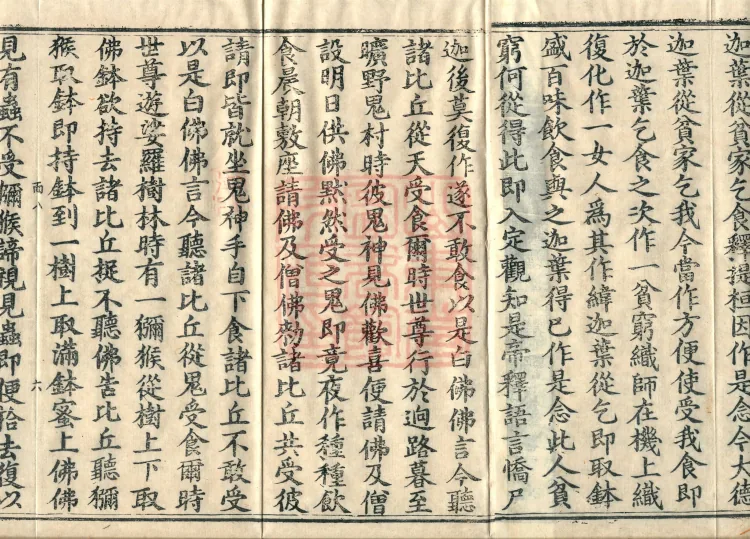 迦葉從貧家乞食釋提桓因作是念今大德
迦葉從貧家乞我今當作方便使受我食即
於迦葉乞食之次作一貧窮織師在機上織
復化作一女人為其作緯迦葉從乞即取鉢
盛百味飲食與之迦葉得已作是念此人貧
窮何從得此即入定觀知是帝釋語言憍尸
迦後莫復作遂不敢食以是白佛佛言今聽
諸比丘從天受食爾時世尊行於逈路暮至
曠野鬼村時彼鬼神見佛歡喜便請佛及僧
設明日供佛默然受之鬼即竟夜作種種飲
食晨朝敷座請佛及僧佛勑諸比丘共受彼
請即皆就坐鬼神手自下食諸比丘不敢受
以是白佛佛言今聽諸比丘從鬼受食爾時
世尊遊娑羅樹林時有一獼猴從樹上下取
佛鉢欲持去諸比丘捉不聽佛告比丘聽獼
猴取鉢即持鉢到一樹上取滿鉢蜜上佛佛
雨八 六
見有蟲不受獼猴諦視見蟲即便拾去復以